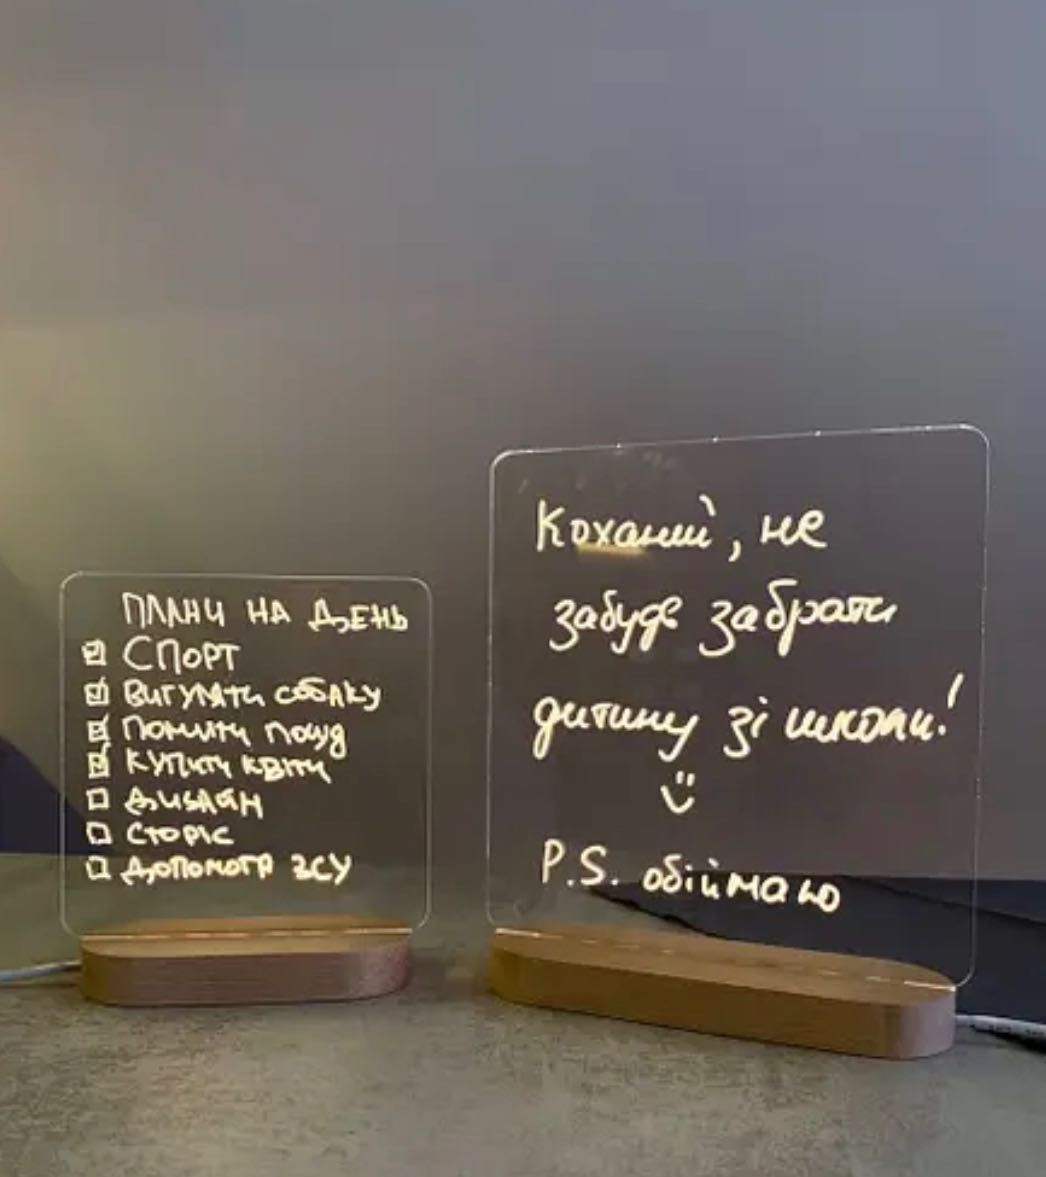 ПЛАНИ НА ДЕНЬ
☑ СПОРТ
☑ ВИГУЛЯТИ СОБАКУ
☑ ПОМИТИ ПОСУД
☑ КУПИТИ КВІТИ
☐ ДИЗАЙН
☐ СТОРІС
☐ ДОПОМОГА ЗСУ
Коханий, не
забудь забрати
дитину зі школи!
P.S. обіймаю